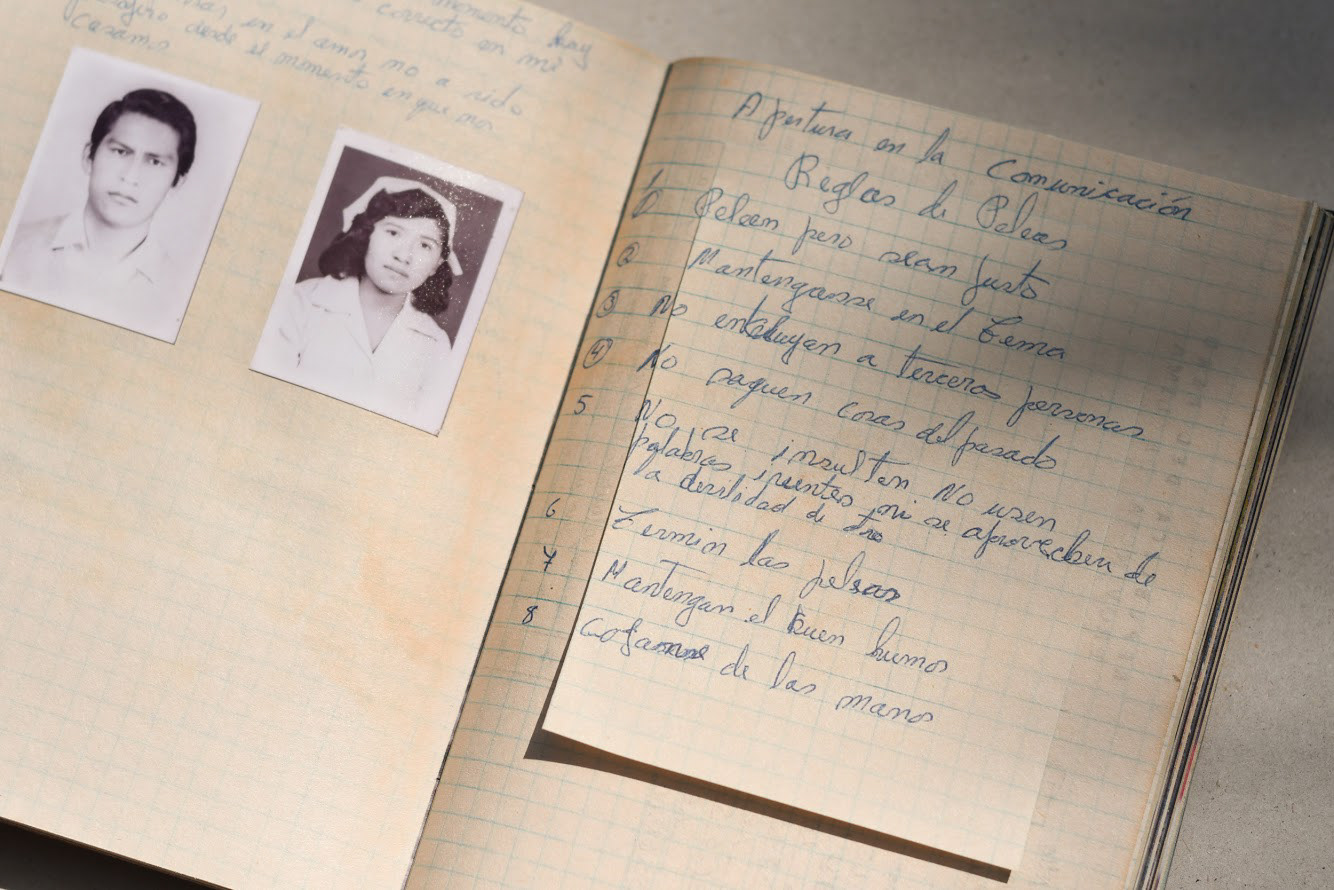 momento hay
correcto en mi
en el amor, no a sido
desde el momento en que nos
casamos
Apertura en la Comunicación
Reglas de Peleas
1 Peleen pero sean justo
2 Mantenganse en el tema
3 No entcluyan a terceros personas
4 No saquen cosas del pasado
5 No se insulten No usen
palabras irientes ni se aprovechen de
la devilidad de
6 Termin las peleas
7 Mantengan el buen humor
8 Cojanse de las manos